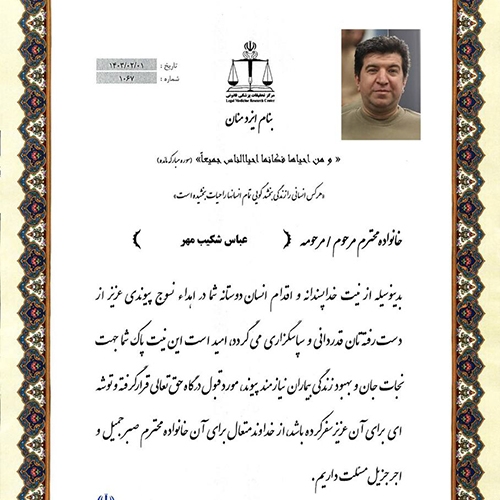 تاریخ : ۱۴۰۳/۰۲/۰۱
شماره : ۱۰۶۷
مرکز تحقیقات پزشکی قانونی
Legal Medicine Research Center
بنام ایزد منان
« و من احیاها فکانما احیاالناس جمیعاً» (سوره مبارکه مائده)
«هر کس انسانی را زندگی بخشد گویی تمام انسانها را حیات بخشیده است»
خانواده محترم مرحوم / مرحومه ( عباس شکیب مهر )
بدینوسیله از نیت خداپسندانه و اقدام انسان دوستانه شما در اهداء نسوج پیوندی عزیز از
دست رفته تان قدردانی و سپاسگزاری می گردد، امید است این نیت پاک شما جهت
نجات جان و بهبود زندگی بیماران نیازمند پیوند، مورد قبول درگاه حق تعالی قرار گرفته و توشه
ای برای آن عزیز سفر کرده باشد، از خداوند متعال برای آن خانواده محترم صبر جمیل و
اجر جزیل مسئلت داریم.